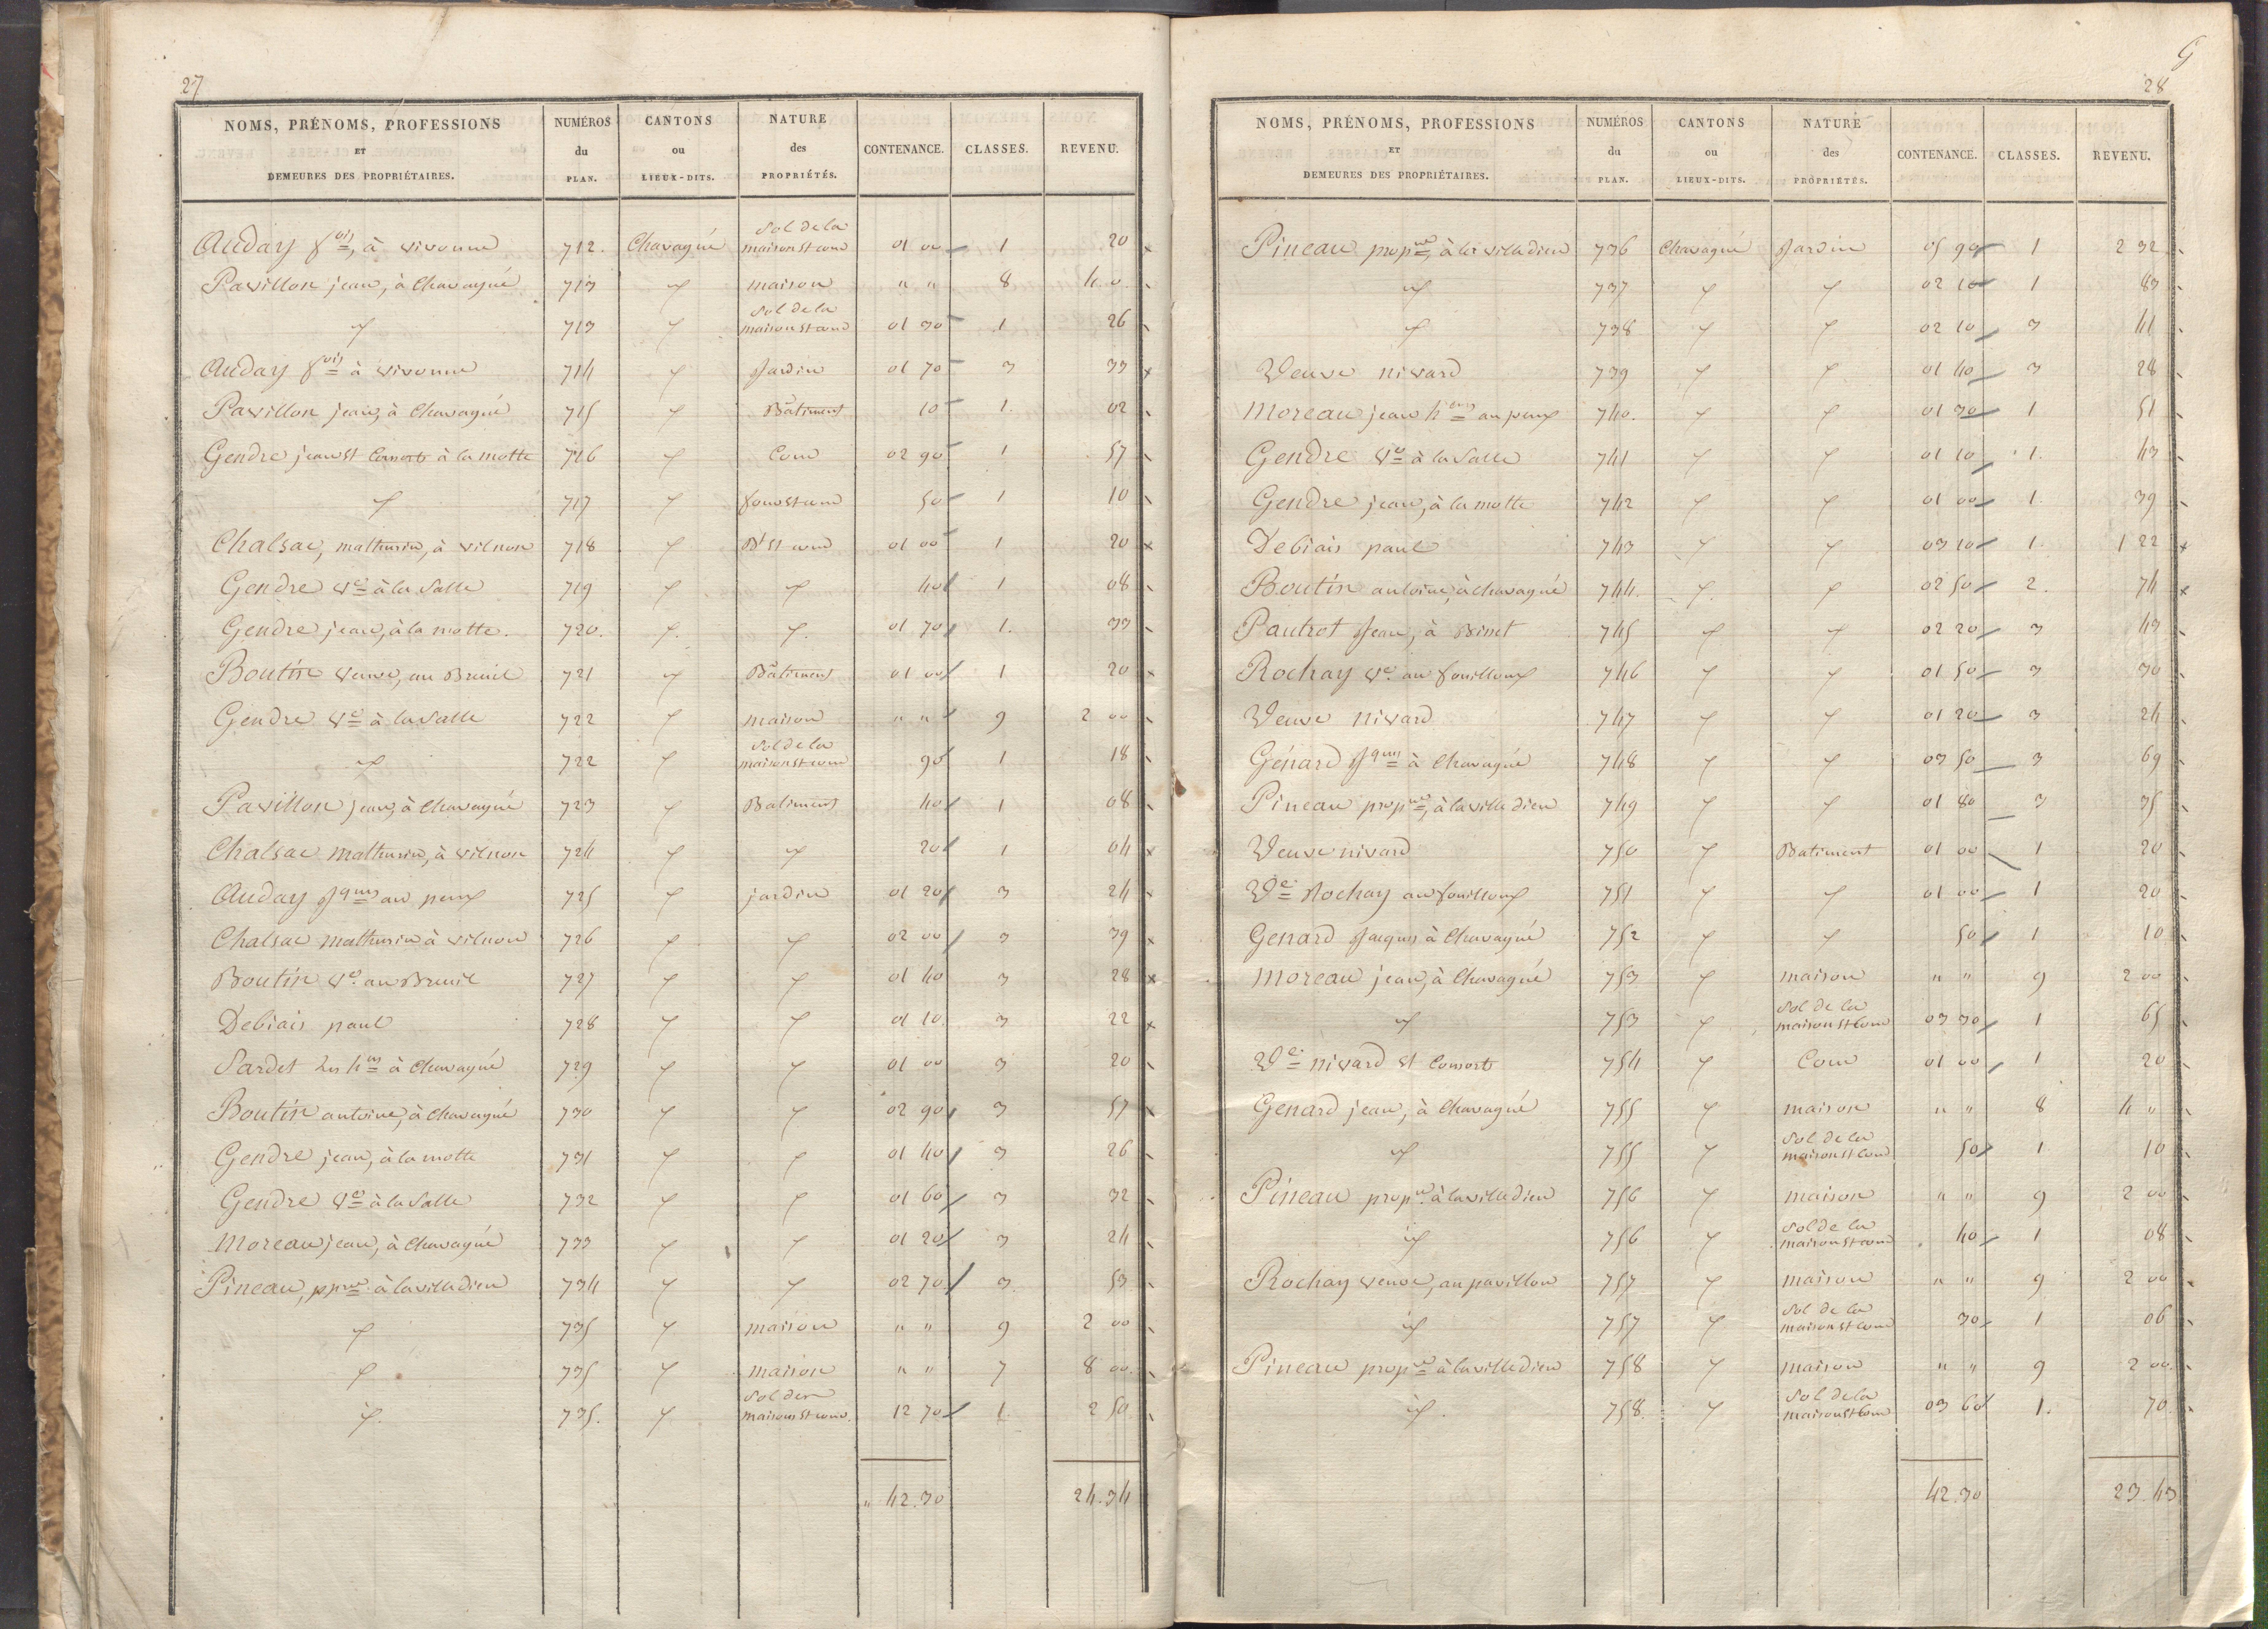 27
NOMS, PRÉNOMS, PROFESSIONS ET DEMEURES DES PROPRIÉTAIRES. NUMÉROS du PLAN. CANTONS ou LIEUX-DITS. NATURE des PROPRIÉTÉS. CONTENANCE. CLASSES. REVENU.
Auday fois, à vivonne 712. Chavagné Sol de la maison et cour 01 00 1 20
Pavillon jean, à Chavagné 713 maison " " 8 4. 0.
713 Sol de la maison et cour 01 30 1 26
Auday fois à vivonne 714 Jardin 01 70 3 33
Pavillon jean, à Chavagné 715 Bâtiment 10 1. 02
Gendre jean et Consorts à la motte 716 Cour 02 90 1 57
717 four et cour 50 1 10
Chalsac, mathurin, à vilnon 718 Bt et cour 01 00 1 20
Gendre Ve à la Salle 719 40 1 08
Gendre jean, à la motte. 720. 01 70 1. 33
Boutin veuve, au Breuil 721 Bâtiment 01 00 1 20
Gendre Ve à la Salle 722 maison " " 9 2 00
722 Sol de la maison et cour 90 1 18
Pavillon jean, à Chavagné 723 Batiment 40 1 08
Chalsac mathurin, à vilnon 724 20 1 04
Auday Jques au peux 725 jardin 01 20 3 24
Chalsac mathurin à vilnon 726 02 00 3 39
Boutin Ve au Breuil 727 01 40 3 28
Debiais paul 728 01 10 3 22
Sardet les hers à Chavagné 729 01 00 3 20
Boutin antoine, à Chavagné 730 02 90 3 57
Gendre jean, à la motte 731 01 40 3 26
Gendre Ve à la Salle 732 01 60 3 32
Moreau jean, à Chavagné 733 01 20 3 24
Pineau, ppre à la villedieu 734 02 70 3. 53
735 maison " " 9 2 00
735 maison " " 7 8 00.
735. Sol des maisons et cour. 12 70 1. 2 50
" 42.30 24.34
G
28
NOMS, PRÉNOMS, PROFESSIONS ET DEMEURES DES PROPRIÉTAIRES. NUMÉROS du PLAN. CANTONS ou LIEUX-DITS. NATURE des PROPRIÉTÉS. CONTENANCE. CLASSES. REVENU.
Pineau propre, à la villedieu 736 Chavagné Jardin 05 90 1 2 32
737 02 10 1 83
738 02 10 3 41
Veuve nivard 739 01 40 3 28
Moreau jean au peux 740. 01 30 1 51
Gendre Ve à la Salle 741 01 10 1. 43
Gendre jean, à la motte 742 01 00 1. 39
Debiais paul 743 03 10 1. 1 22
Boutin antoine, à chavagné 744. 02 50 2. 74
Pautrot Jean, à Binet 745 02 20 3 43
Rochay Ve au fouilloux 746 01 50 3 30
Veuve nivard 747 01 20 3 24
Génard Jques à Chavagné 748 03 50 3 69
Pineau propre, à la villedieu 749 01 80 3 35
Veuve nivard 750 Batiment 01 00 1 20
Ve Rochay au fouilloux 751 01 00 1 20
Genard Jaques à Chavagné 752 50 1 10
Moreau jean, à Chavagné 753 maison " " 9 2 00
753 Sol de la maison et Cour 03 30 1 65
Ve nivard et Consorts 754 Cour 01 00 1 20
Genard jean, à Chavagné 755 maison " " 8 4 "
755 Sol de la maison et Cour 50 1 10
Pineau propre à la villedieu 756 maison " " 9 2 00
756 Sol de la maison et cour 40 1 08
Rochay veuve, au pavillon 757 maison " " 9 2 00
757 Sol de la maison et cour 30 1 06
Pineau propre à la villedieu 758 maison " " 9 2 00.
758. Sol de la maison et Cour 03 60 1. 70
42.30 23.43